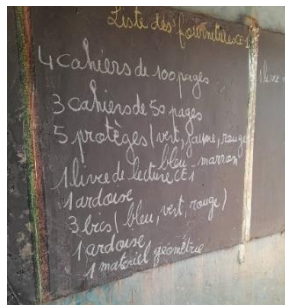 Liste des fournitures CE1
4 cahiers de 100 pages
3 cahiers de 50 pages
5 protèges (vert, jaune, rouge
bleu - marron
1 livre de lecture CE1
1 ardoise
3 bics (bleu, vert, rouge)
1 ardoise
1 matériel géometrie
1 livre